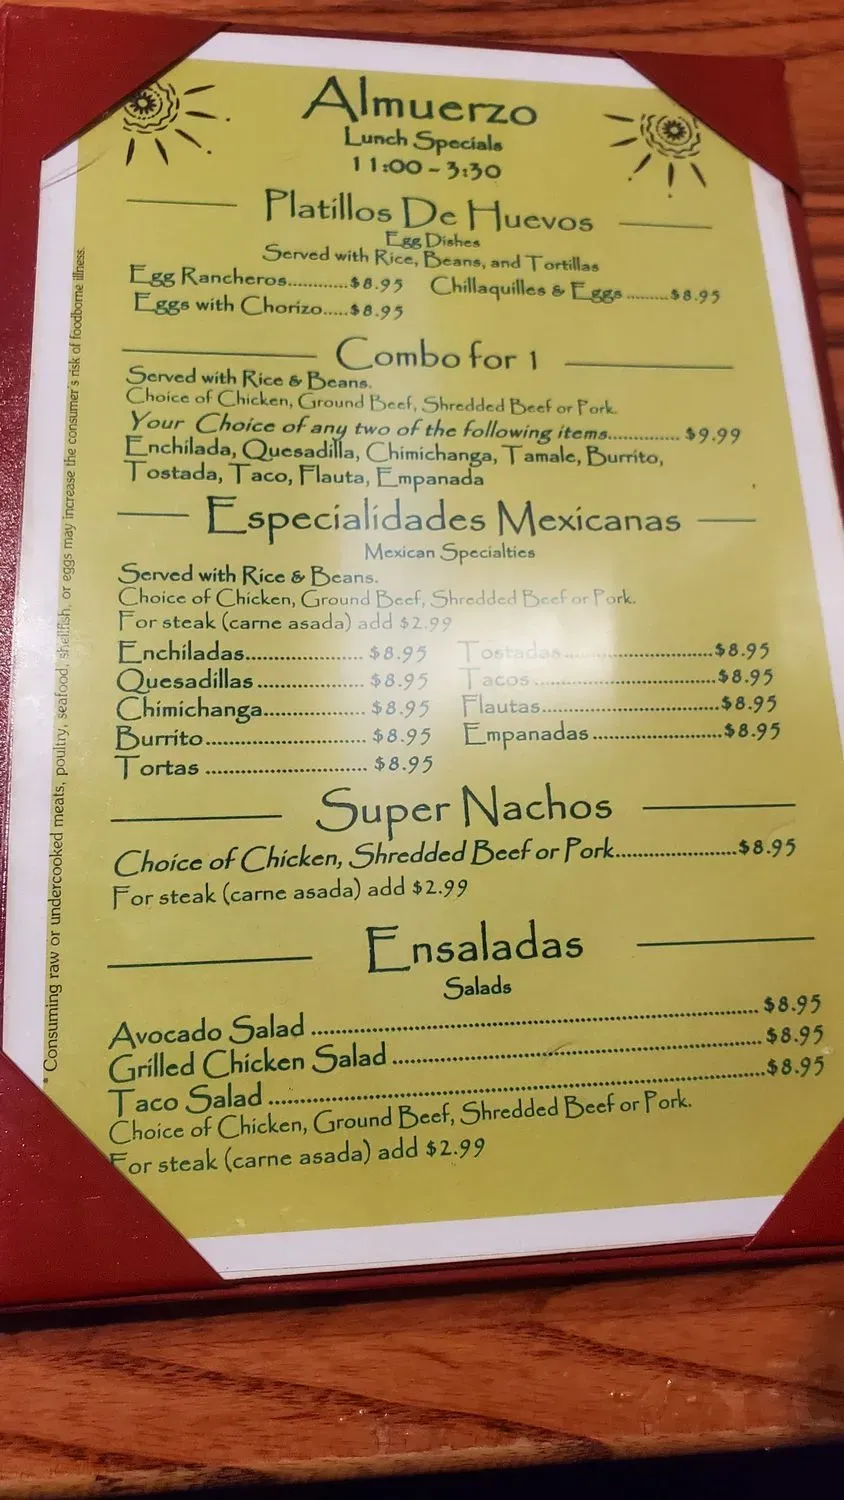 Almuerzo
Lunch Specials
11:00 - 3:30
Platillos De Huevos
Egg Dishes
Served with Rice, Beans, and Tortillas
Egg Rancheros............$8.95 Chillaquilles & Eggs.........$8.95
Eggs with Chorizo.....$8.95
Combo for 1
Served with Rice & Beans.
Choice of Chicken, Ground Beef, Shredded Beef or Pork.
Your Choice of any two of the following items.............. $9.99
Enchilada, Quesadilla, Chimichanga, Tamale, Burrito,
Tostada, Taco, Flauta, Empanada
Especialidades Mexicanas
Mexican Specialties
Served with Rice & Beans.
Choice of Chicken, Ground Beef, Shredded Beef or Pork.
For steak (carne asada) add $2.99
Enchiladas....................... $8.95 Tostadas.............................$8.95
Quesadillas..................... $8.95 Tacos...................................$8.95
Chimichanga.................... $8.95 Flautas..................................$8.95
Burrito............................... $8.95 Empanadas.........................$8.95
Tortas ............................... $8.95
Super Nachos
Choice of Chicken, Shredded Beef or Pork........................$8.95
For steak (carne asada) add $2.99
Ensaladas
Salads
Avocado Salad .................................................................................... $8.95
Grilled Chicken Salad ...................................................................... $8.95
Taco Salad ...........................................................................................$8.95
Choice of Chicken, Ground Beef, Shredded Beef or Pork.
For steak (carne asada) add $2.99
* Consuming raw or undercooked meats, poultry, seafood, shellfish, or eggs may increase the consumer's risk of foodborne illness.